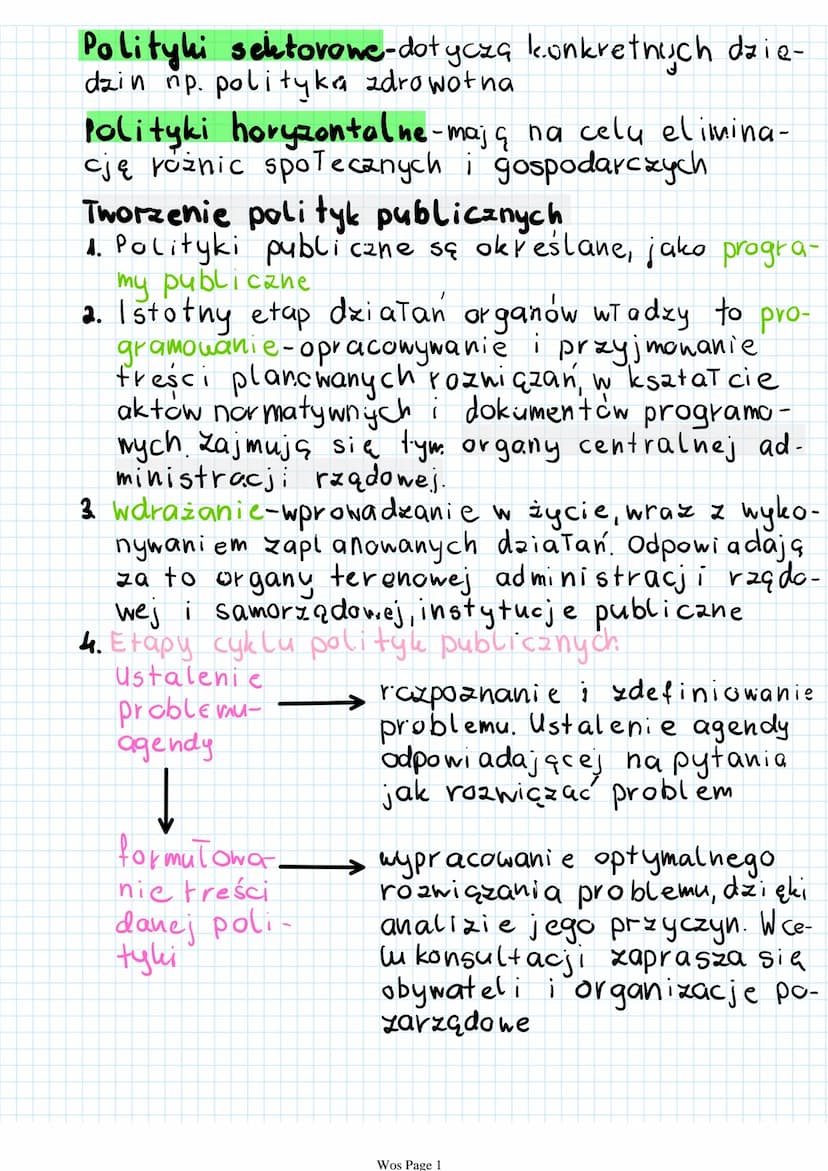 Polityki sektorowe-dotyczą konkretnych dzie-
dzin np. polityka zdrowotna
Polityki horyzontalne-mają na celu elimina-
cję różnic społecznych i gospodarczych
Tworzenie polityk publicznych
1. Polityki publiczne są określane, jako progra-
my publiczne
2. Istotny etap działań organów władzy to pro-
gramowanie-opracowywanie i przyjmowanie
treści planowanych rozwiązań, w kształcie
aktów normatywnych i dokumentów programo-
wych. Zajmują się tym organy centralnej ad-
ministracji rządowej.
3. Wdrażanie-wprowadzanie w życie, wraz z wyko-
nywaniem zaplanowanych działań. Odpowiadają
za to organy terenowej administracji rządo-
wej i samorządowej, instytucje publiczne
4. Etapy cyklu polityk publicznych
Ustalenie
problemu-
agendy
rozpoznanie i zdefiniowanie
problemu. Ustalenie agendy
odpowiadającej na pytania
jak rozwiązać problem
formułowa-
nie treści
danej poli-
tyki
wypracowanie optymalnego
rozwiązania problemu, dzięki
analizie jego przyczyn. W ce-
lu konsultacji zaprasza się
obywateli i organizacje po-
zarządowe
Wos Page 1